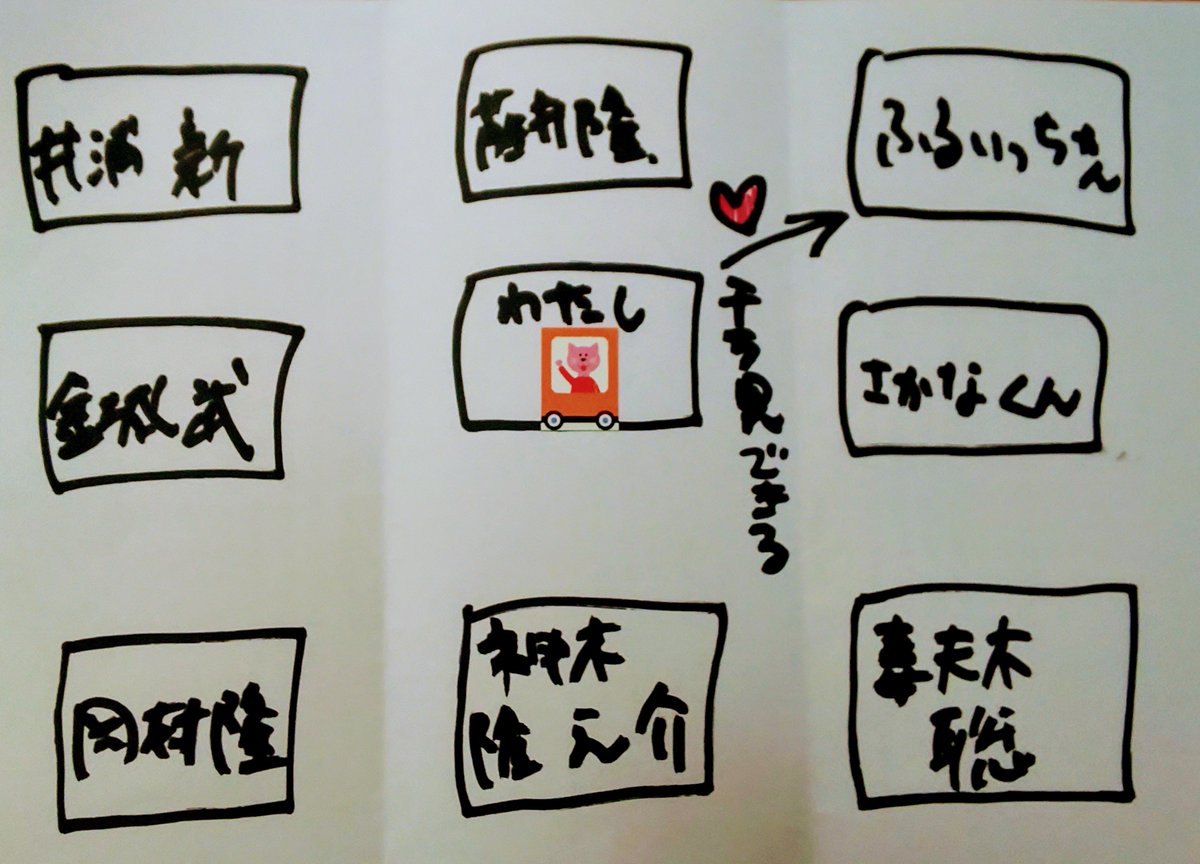 井浦 新
藤井隆
ふるいっちゃん
金城 武
わたし
チラ見できる
さかなくん
岡村隆
神木
隆之介
妻夫木
聡